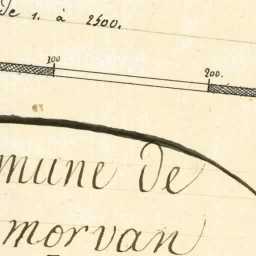 de 1. à 2500.
100 200.
mune de
morvan